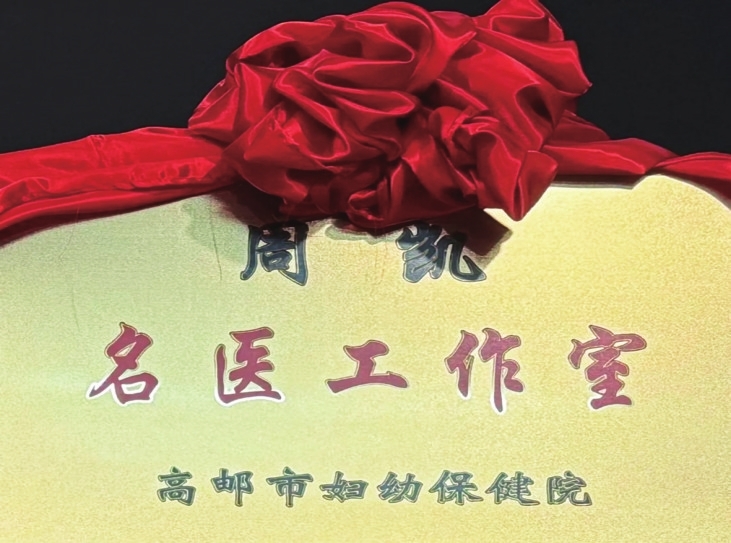 周 凯
名医工作室
高邮市妇幼保健院